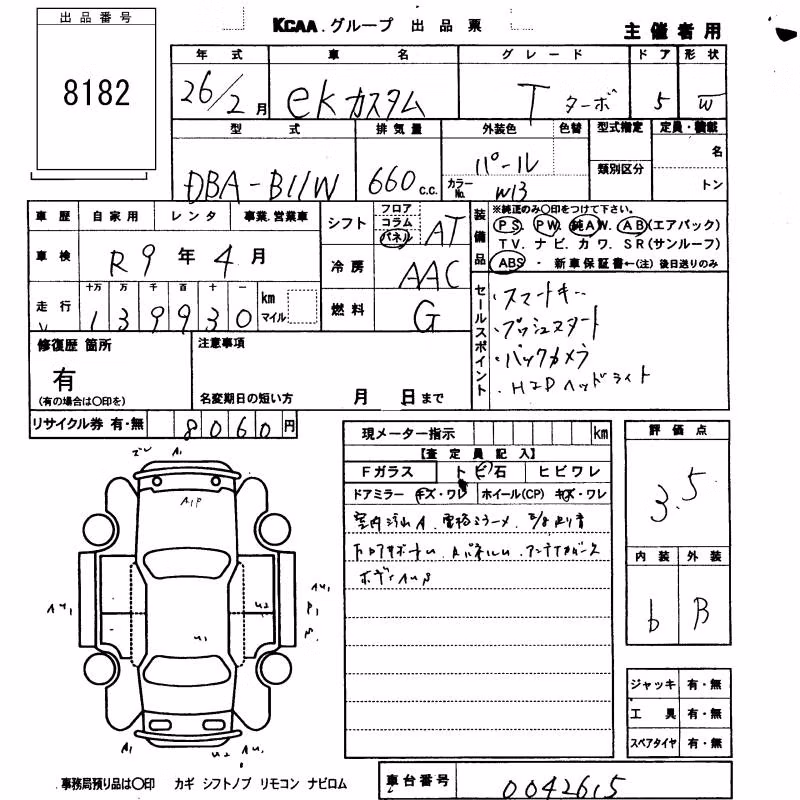 出品番号
8182
KCAA.グループ 出品票
主催者用
年式 車名 グレード ドア 形状
26/2月 ekカスタム T ターボ 5 W
型式 排気量 外装色 色替 型式指定 定員・積載
DBA-B11W 660 c.c. パール 名
カラーNo. W13 類別区分 トン
車歴 自家用 レンタ 事業.営業車
車検 R9年4月
走行 十万 万 千 百 十 一
139930 km マイル
シフト フロア コラム パネル AT
冷房 AAC
燃料 G
装備品
※純正のみ○印をつけて下さい。
PS. PW. 純AW. AB(エアバック)
TV.ナビ.カワ.SR(サンルーフ)
ABS・新車保証書←(注)後日送りのみ
セールスポイント
・スマートキー
・プッシュスタート
・バックカメラ
・HIDヘッドライト
修復歴 箇所
有
(有の場合は○印を)
注意事項
名変期日の短い方 月 日まで
リサイクル券 有・無 8060円
現メーター指示 km
【査定員記入】
Fガラス トビ石 ヒビワレ
ドアミラー キズ・ワレ ホイール(CP) キズ・ワレ
室内汚れA.電格ミラー×.
ボディ
評価点
3.5
内装 外装
b B
ジャッキ 有・無
工具 有・無
スペアタイヤ 有・無
A1
A1P
AU1 U2 AU1
P1
U1
A1 U2 AU1
事務局預り品は○印 カギ シフトノブ リモコン ナビロム
車台番号 0042615